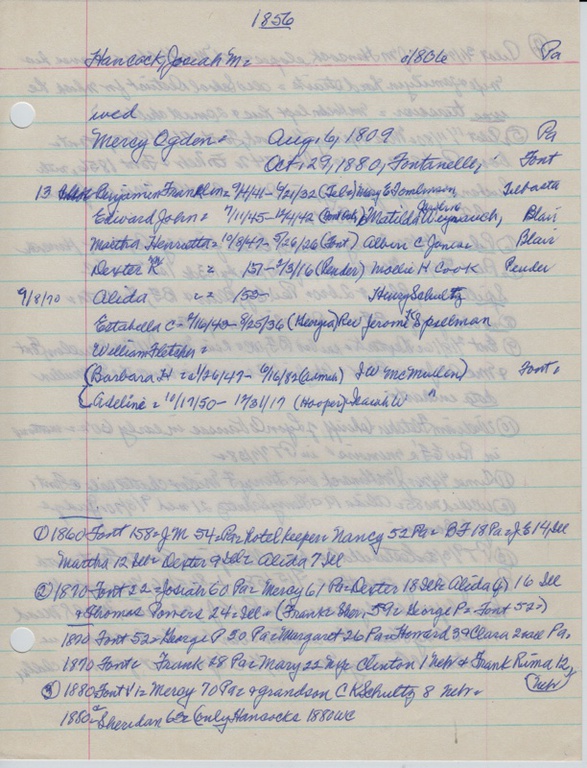 1856
Hancock, Josiah M = c/1806 Pa
wed
Mercy Ogden = Aug, 6, 1809 Pa
Oct, 29, 1880, Fontanelle, Font
13 Benjamin Franklin = 9/4/41 - 6/21/32 (Tek) Mary E Tomlinson Nebraska
Edward John = 7/11/45 - 12/4/42 Matilda Weynauch, Blair
Martha Henrietta = 10/8/47 - 5/26/26 (Font) Albert C Jones Blair
Dexter R = = 151 - 2/3/16 (Pender) Mollie H Cook Pender
9/8/70 Alida = = 153 - Henry Schultz
Estabella C - 9/16/43 - 8/25/36 (Georgia) Rev Jerome Spielman
William Fletcher =
(Barbara H = 2/26/47 - 6/16/82 J W McMullen) Font =
(Adeline = 10/17/50 - 1/31/17 (Hooper) Isaiah W "
① 1860 Font 158 = J M 54 Pa Hotel Keeper = Nancy 52 Pa = B F 18 Pa = J E 14 Ill
Martha 12 Ill = Dexter 9 Ill = Alida 7 Ill
② 1870 Font 22 = Josiah 60 Pa = Mercy 61 Pa = Dexter 18 Ill = Alida 16 Ill
+ Thomas Powers 24 = Ill = (Frank 59 = George P = Font 52 =)
1870 Font 52 = George P 30 Pa = Margaret 26 Pa = Howard 3 = Clara 2 Pa,
1870 Font = Frank 28 Pa = Mary 22 Clinton 1 Nebr + Frank Rima 12
(Nebr)
③ 1880 Font = Mercy 70 Pa = + grandson C K Schultz 8 Nebr =
1880 = Sheridan 63 = (only Hancocks 1880 WC